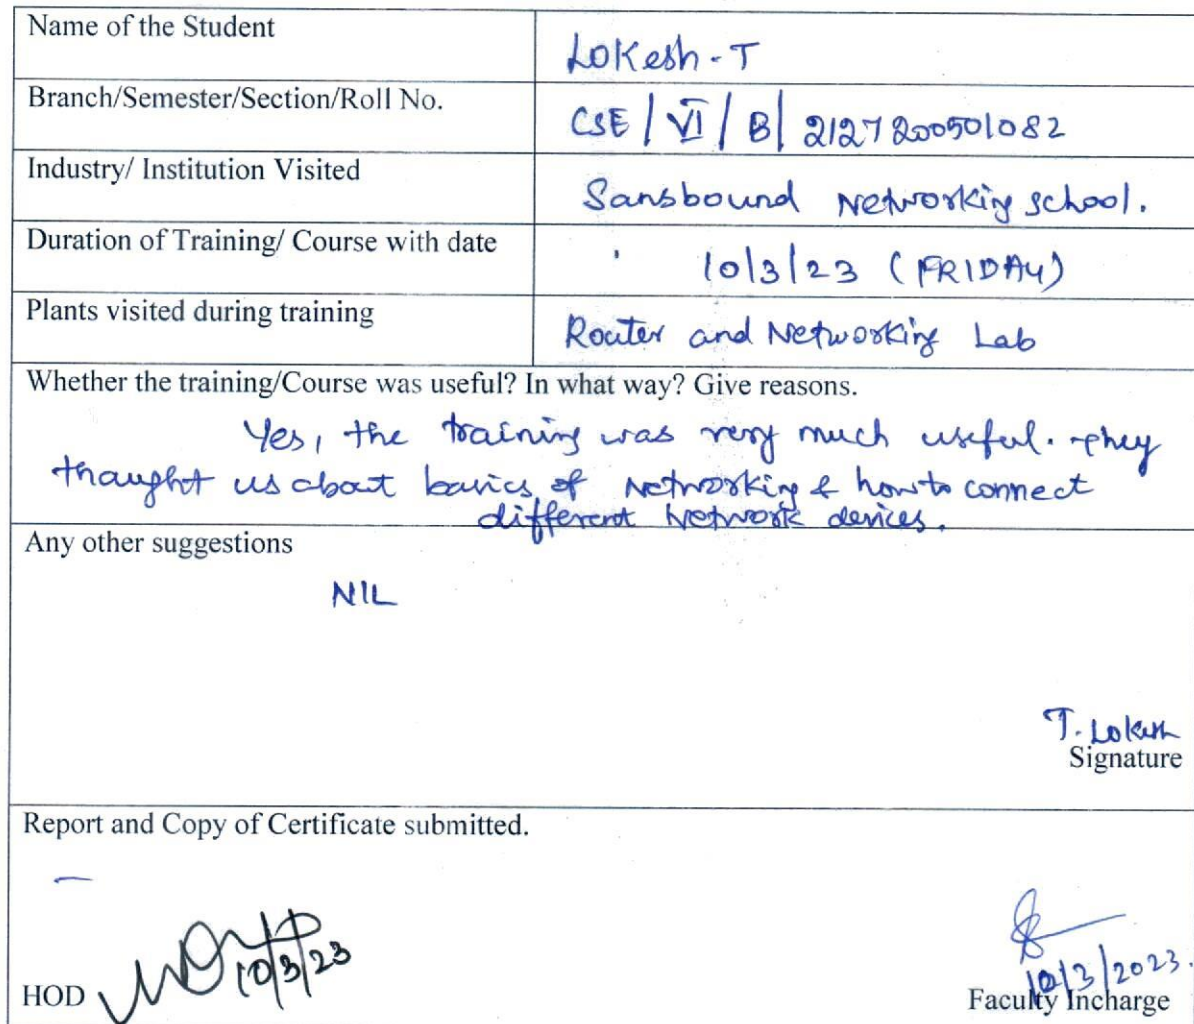 Name of the Student
Lokesh-T
Branch/Semester/Section/Roll No.
CSE / VI / B / 2127200501082
Industry/ Institution Visited
Sansbound Networking school.
Duration of Training/ Course with date
10/3/23 (FRIDAY)
Plants visited during training
Router and Networking Lab
Whether the training/Course was useful? In what way? Give reasons.
Yes, the training was very much useful. They
thaught us about basics of Networking & how to connect
different Network devices.
Any other suggestions
NIL
T. Lokesh
Signature
Report and Copy of Certificate submitted.
10/3/23
HOD
10/3/2023.
Faculty Incharge